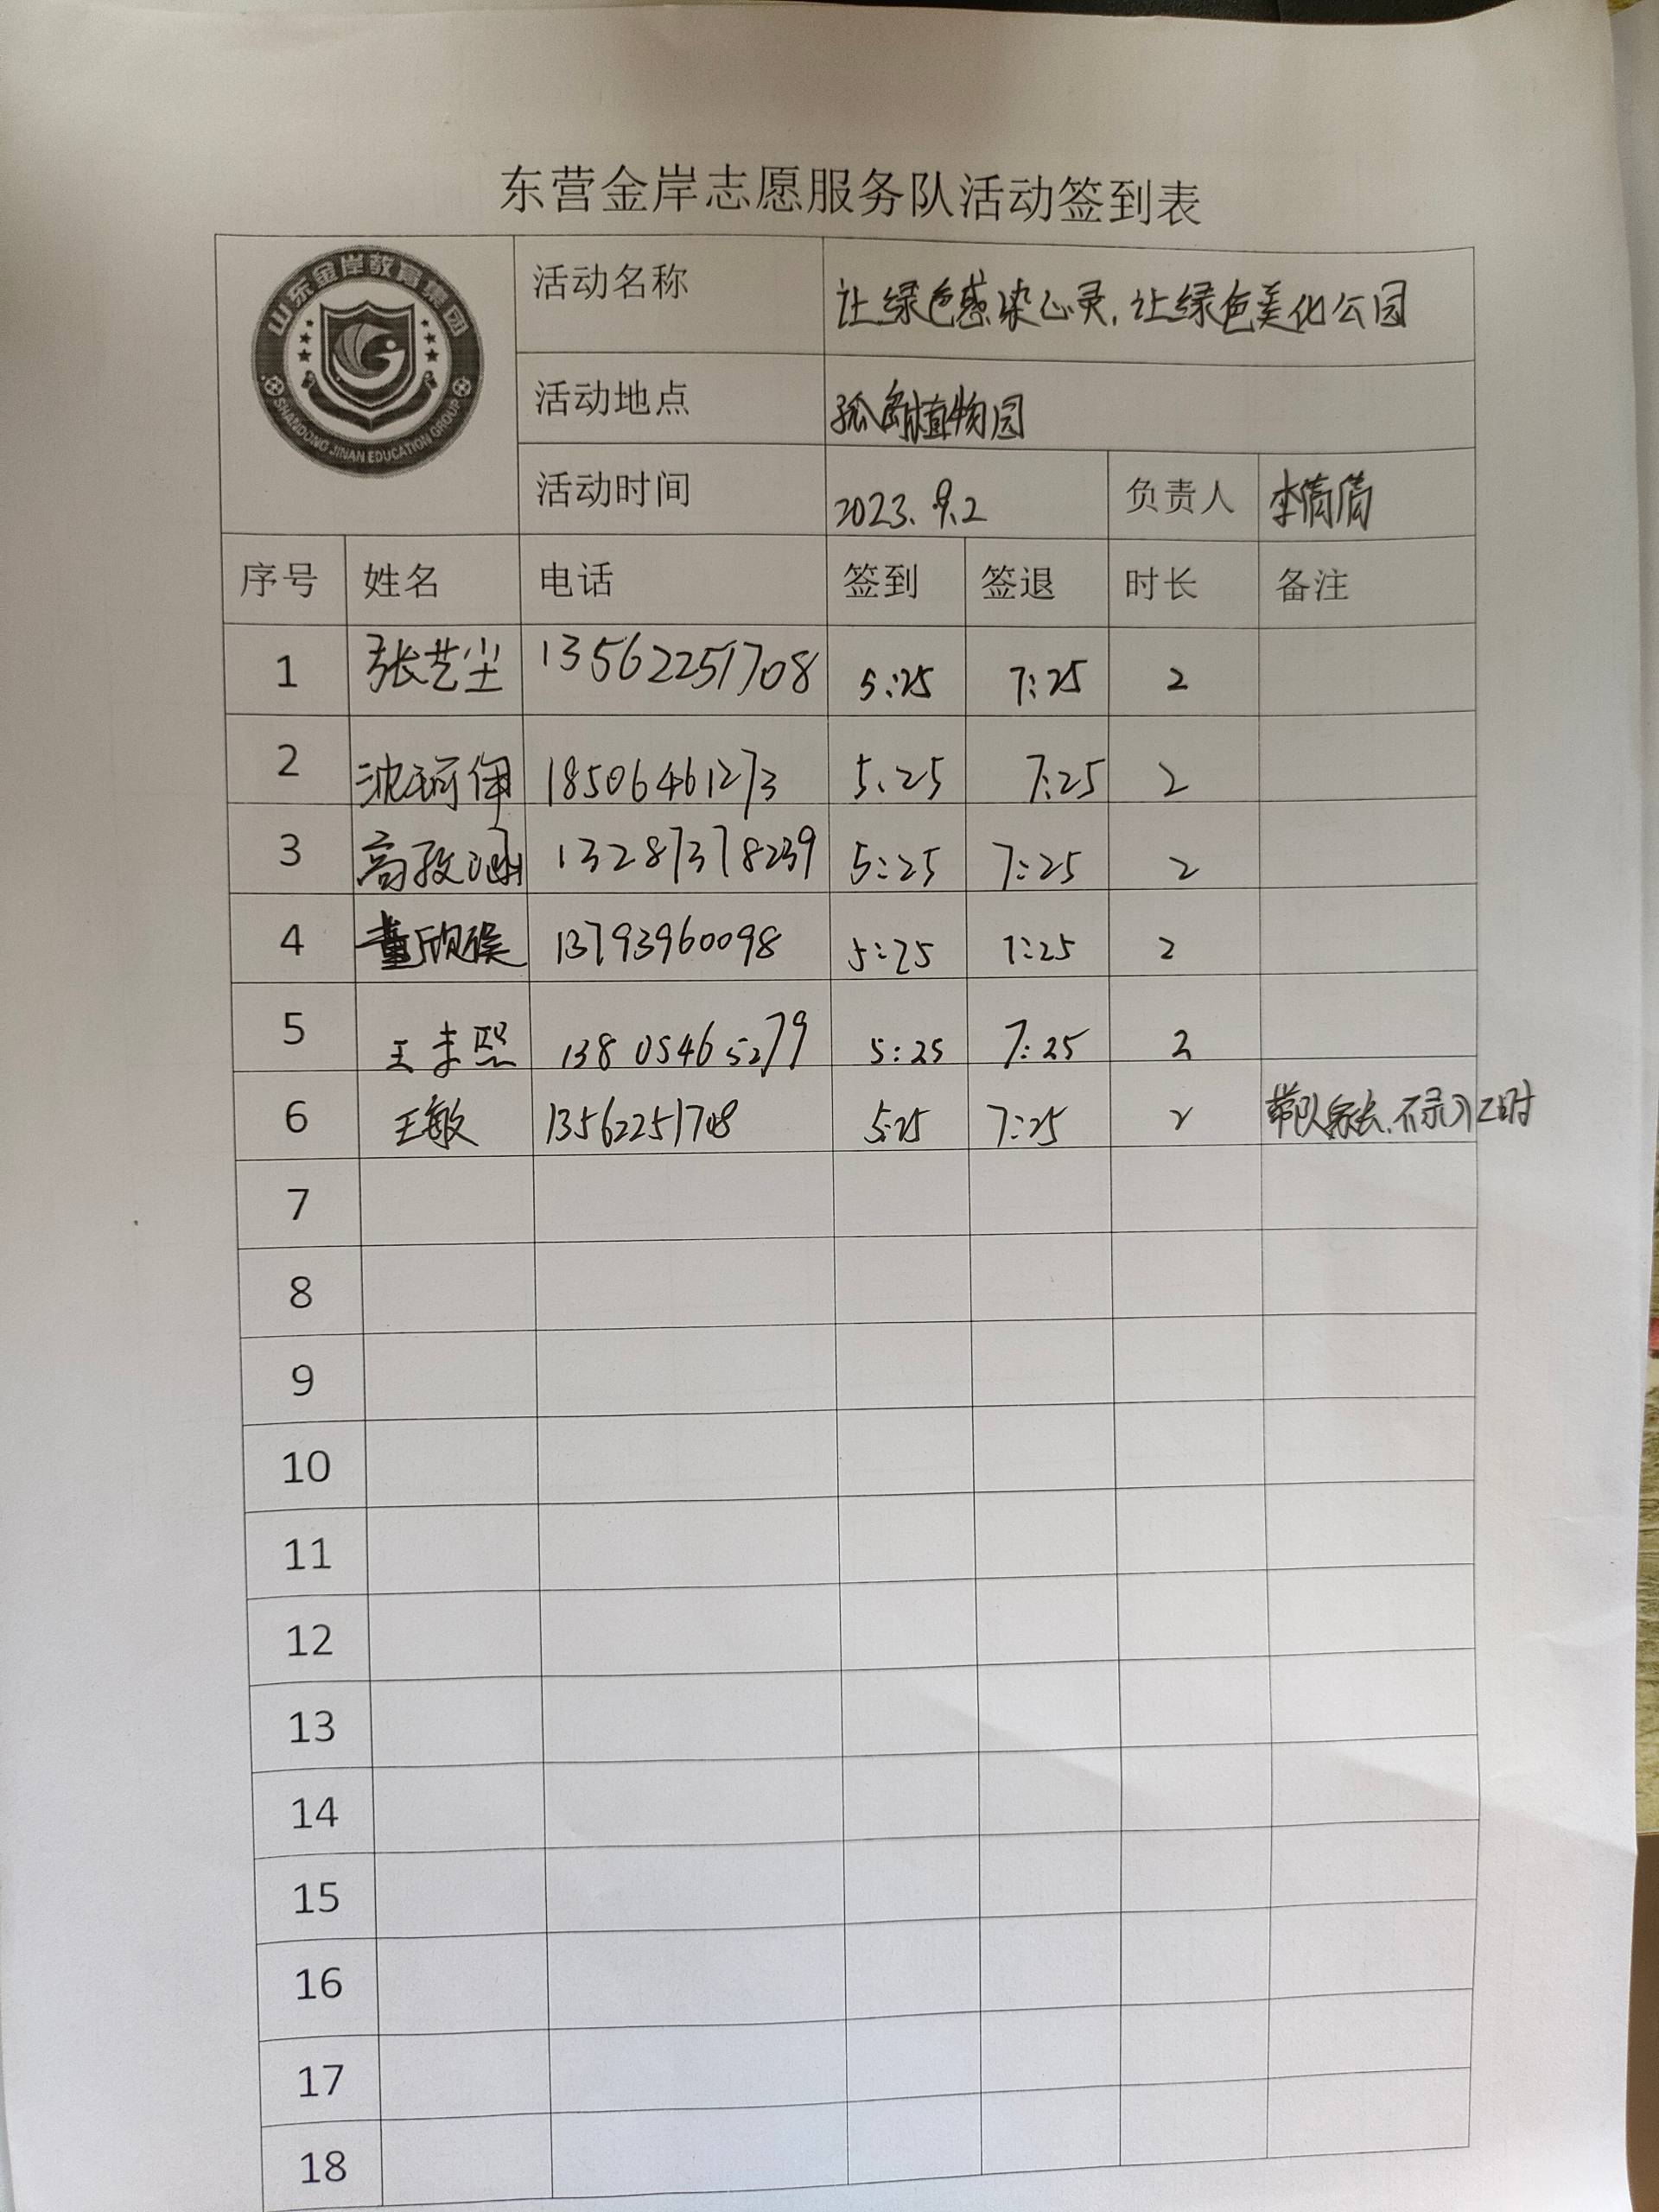 东营金岸志愿服务队活动签到表
山东金岸教育集团
SHANDONG JINAN EDUCATION GROUP
活动名称 让绿色感染心灵,让绿色美化公园
活动地点 孤岛植物园
活动时间 2023.9.2 负责人 李倩倩
序号 姓名 电话 签到 签退 时长 备注
1 张艺尘 13562251708 5:25 7:25 2
2 沈珂伊 18506461273 5:25 7:25 2
3 高孜涵 13287378239 5:25 7:25 2
4 董欣 13793960098 5:25 7:25 2
5 王 熙 13805465279 5:25 7:25 2
6 王敏 13562251708 5:25 7:25 2 带队家长,不录入工时
7
8
9
10
11
12
13
14
15
16
17
18